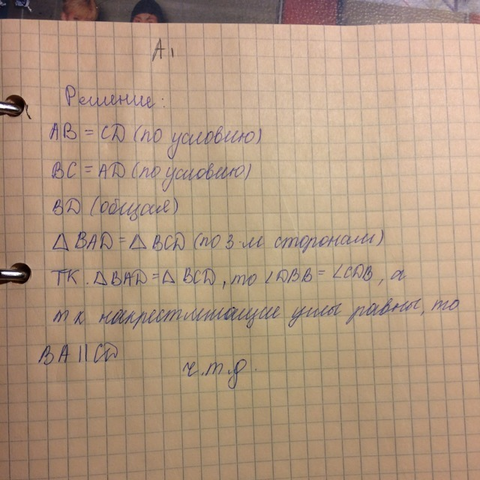 А1
Решение:
AB = CD (по условию)
BC = AD (по условию)
BD (общая)
△ BAD = △ BCD (по 3-м сторонам)
ТК. △ BAD = △ BCD, то ∠DBB = ∠CDB, а
т к накрестлежащие углы равны, то
BA || CD
ч.т.д.